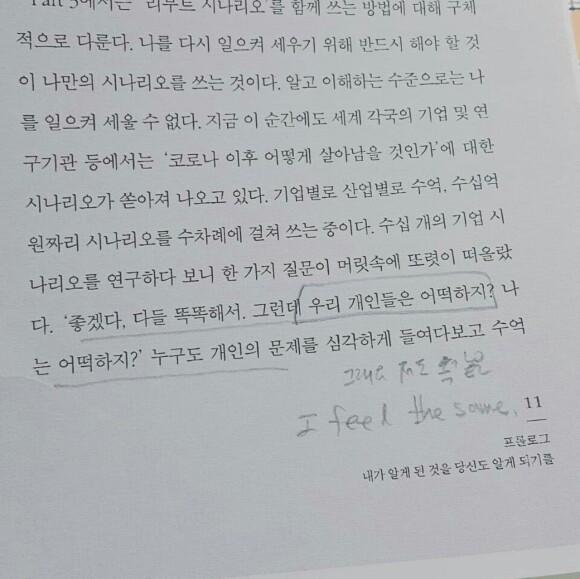 Part 3에서는 '리부트 시나리오'를 함께 쓰는 방법에 대해 구체
적으로 다룬다. 나를 다시 일으켜 세우기 위해 반드시 해야 할 것
이 나만의 시나리오를 쓰는 것이다. 알고 이해하는 수준으로는 나
를 일으켜 세울 수 없다. 지금 이 순간에도 세계 각국의 기업 및 연
구기관 등에서는 '코로나 이후 어떻게 살아남을 것인가'에 대한
시나리오가 쏟아져 나오고 있다. 기업별로 산업별로 수억, 수십억
원짜리 시나리오를 수차례에 걸쳐 쓰는 중이다. 수십 개의 기업 시
나리오를 연구하다 보니 한 가지 질문이 머릿속에 또렷이 떠올랐
다. '좋겠다, 다들 똑똑해서. 그런데 우리 개인들은 어떡하지? 나
는 어떡하지?' 누구도 개인의 문제를 심각하게 들여다보고 수억
I feel the same.
11
프롤로그
내가 알게 된 것을 당신도 알게 되기를